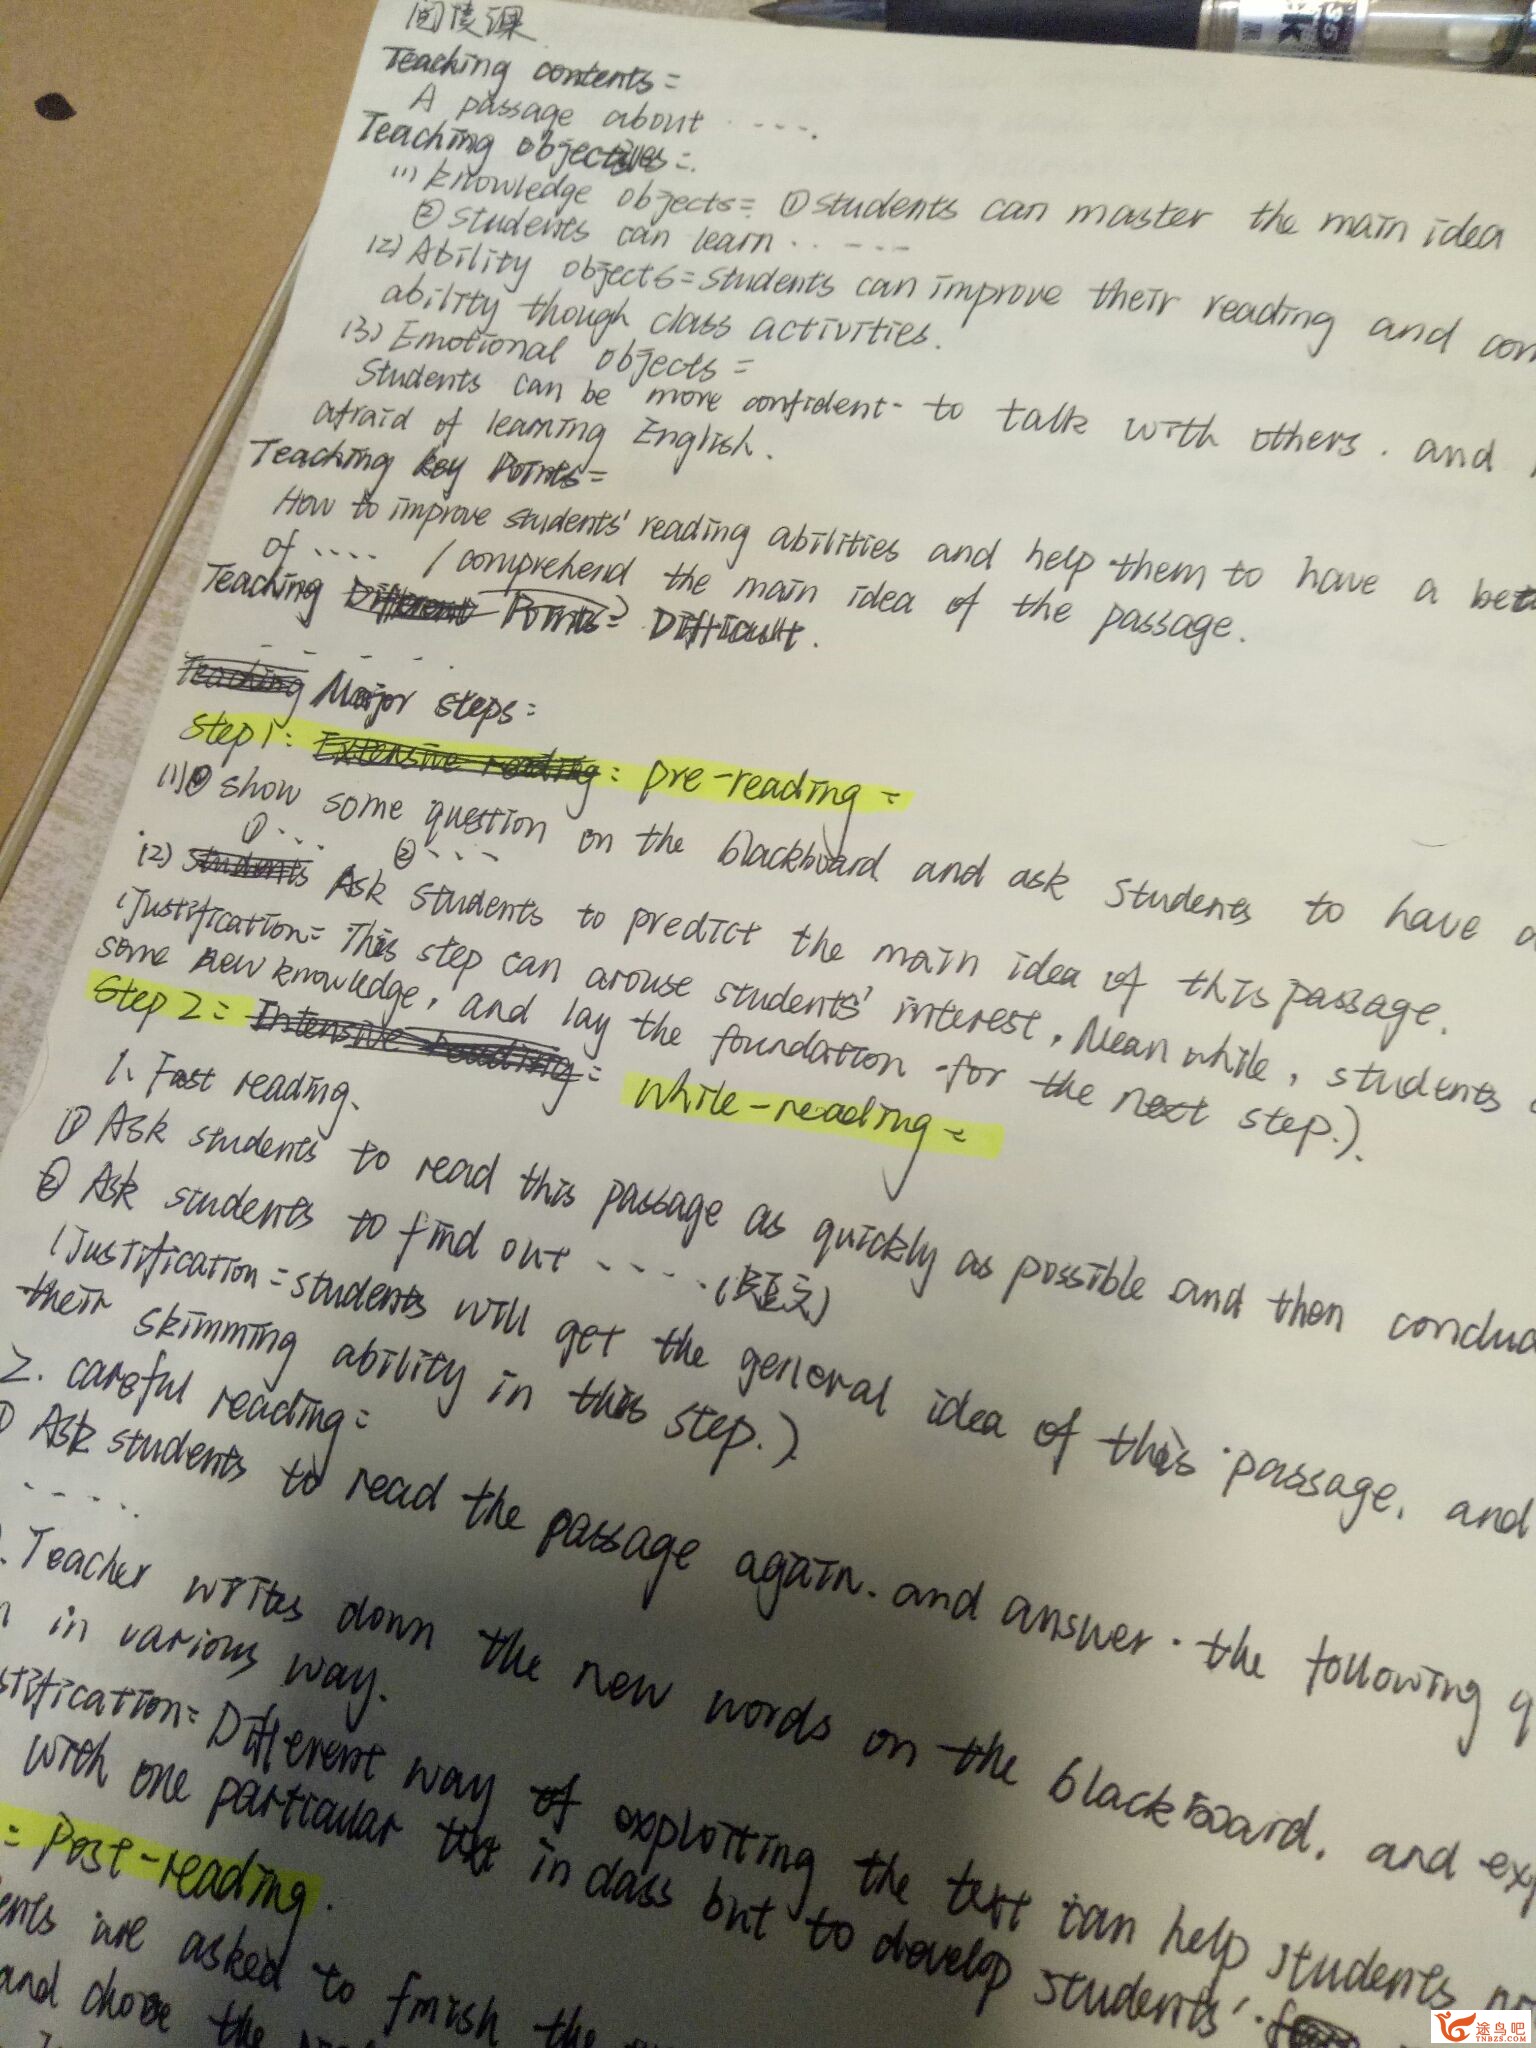 阅读课
Teaching contents:
A passage about ‐‐‐‐.
Teaching objectives:
(1) knowledge objects: ① students can master the main idea
② students can learn ‐‐‐‐
(2) Ability objects: students can improve their reading and
ability though class activities.
(3) Emotional objects:
Students can be more confident to talk with others. and
afraid of learning English.
Teaching key Points:
How to improve students' reading abilities and help them to have a
of ‐‐‐‐ / comprehend the main idea of the passage.
Teaching Different Points: Difficult.
Teaching Major steps:
Step 1: Extensive reading: pre-reading:
(1) show some question on the blackboard and ask students to have
① ‐‐‐ ② ‐‐‐
(2) students Ask students to predict the main idea of this passage.
(justification: This step can arouse students' interest. Mean while, students
some new knowledge, and lay the foundation for the next step.).
Step 2: Intensive reading: while-reading:
1. Fast reading.
① Ask students to read this passage as quickly as possible and then
② Ask students to find out ‐‐‐‐
(justification: students will get the general idea of this passage. and
their skimming ability in this step.)
2. careful reading:
① Ask students to read the passage again. and answer the following
‐‐‐‐.
Teacher writes down the new words on the blackboard. and
in various way.
Different way of exploiting the text can help students
with one particular text in class but to develop students'
: Post-reading.
are asked to finish the
and choose the
途鸟吧
TNBZS.COM